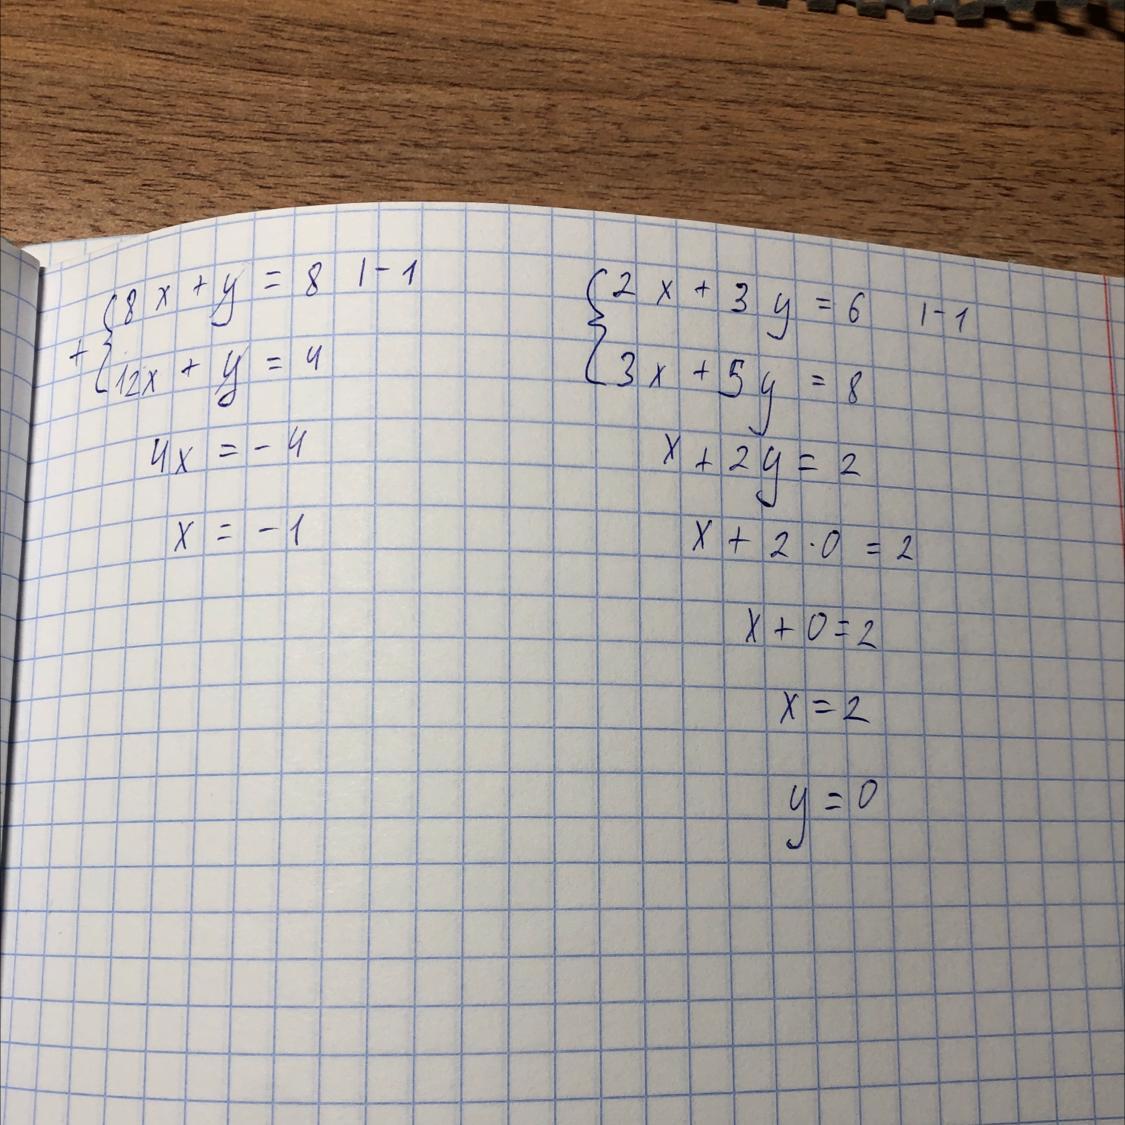 + { 8x + y = 8 | -1
12x + y = 4
4x = -4
x = -1
{ 2x + 3y = 6 | -1
3x + 5y = 8
x + 2y = 2
x + 2 · 0 = 2
x + 0 = 2
x = 2
y = 0